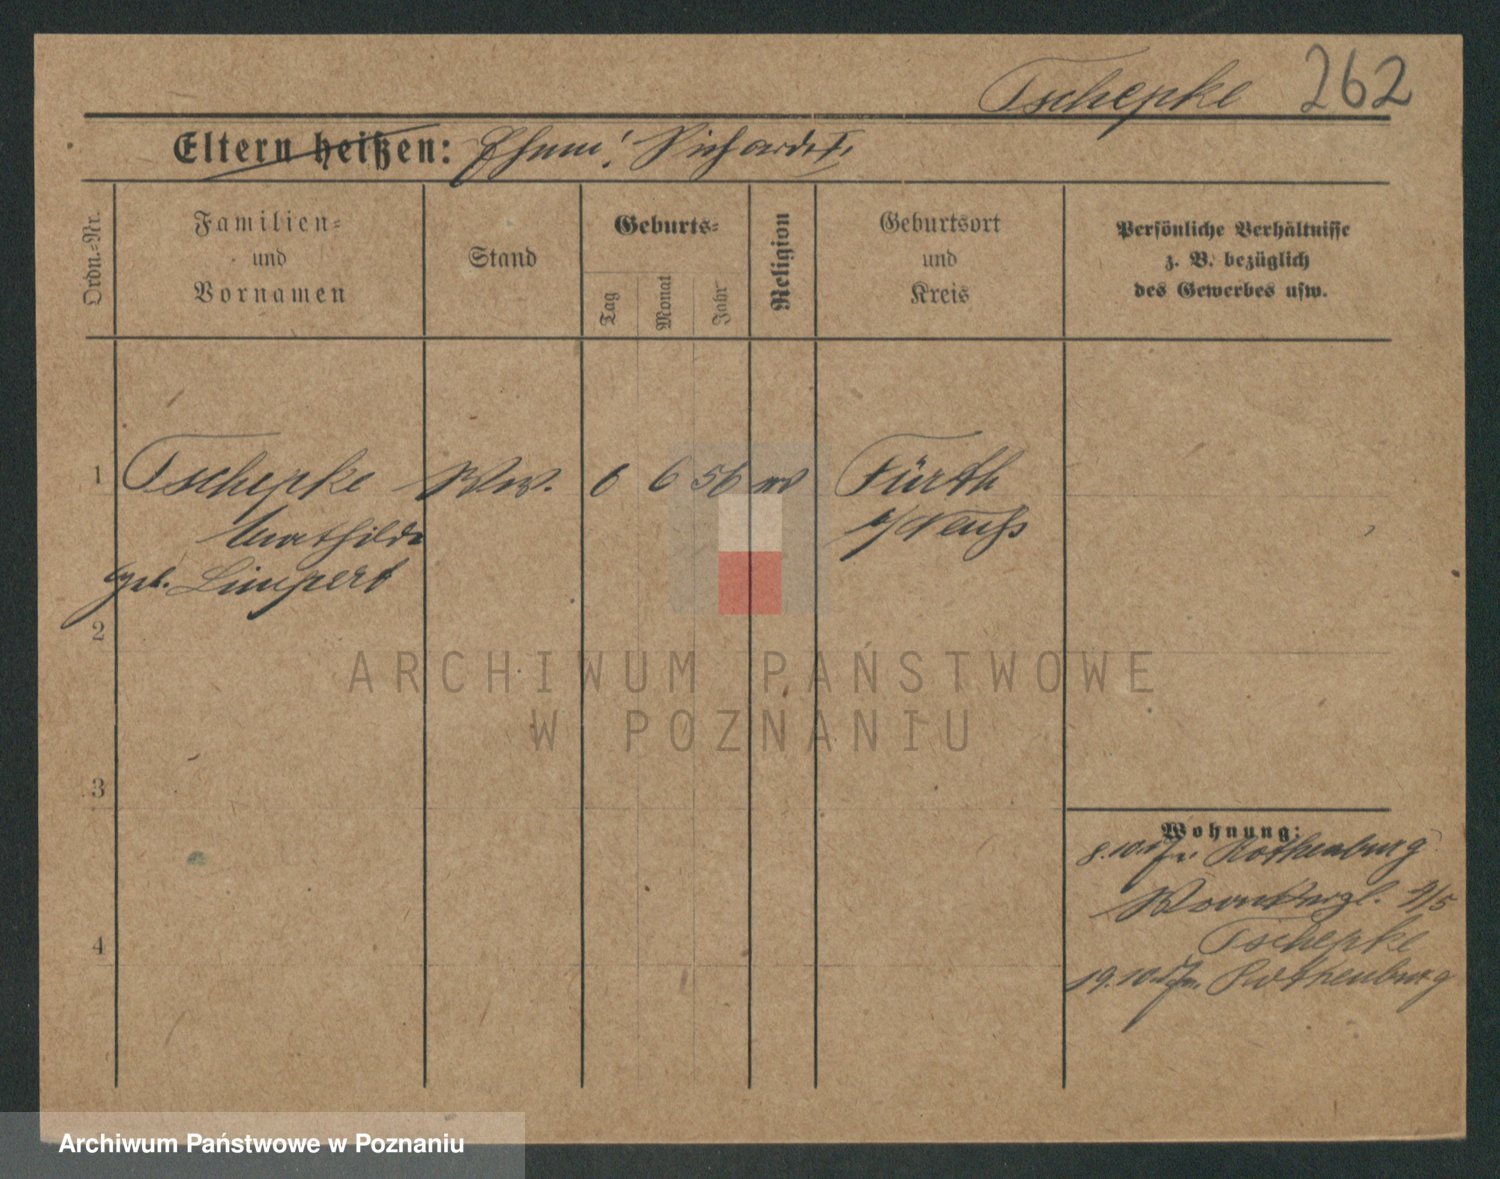 Tschepke 262
Eltern heißen: Ehem: Richard †.
Ordn.-Nr.
Familien-
und
Vornamen
Stand
Geburts-
Tag
Monat
Jahr
Religion
Geburtsort
und
Kreis
Persönliche Verhältnisse
z. B. bezüglich
des Gewerbes usw.
1 Tschepke Ww. 6 6 56 Fürth
Mathilde Neuß
geb. Limpert
2
3
4
Wohnung:
8.10. Rothenburg
4/5
Tschepke
19.10. Rothenburg
ARCHIWUM PAŃSTWOWE
W POZNANIU
Archiwum Państwowe w Poznaniu